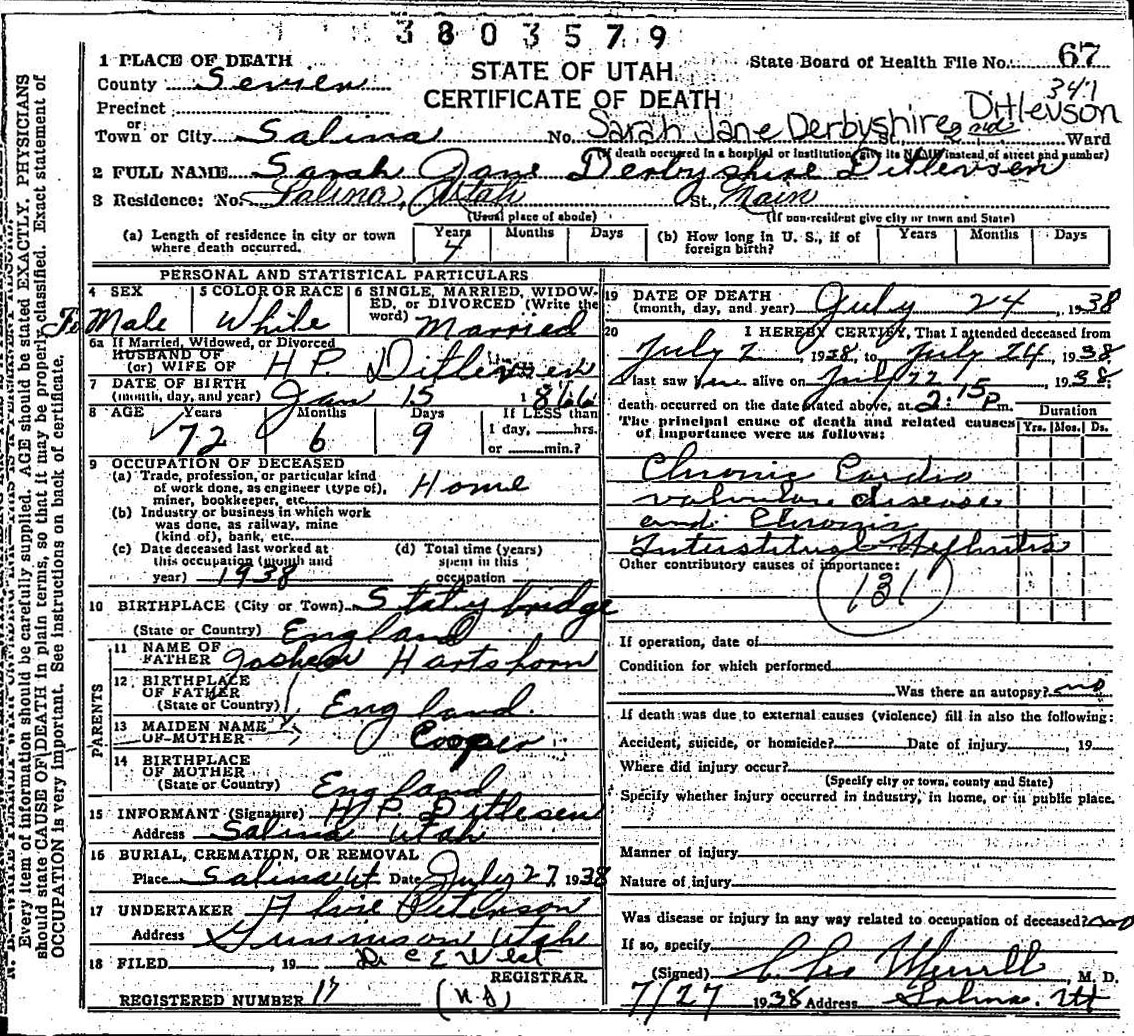 3803579
1 PLACE OF DEATH
County Sevier
Precinct
or
Town or City Salina No.
STATE OF UTAH
CERTIFICATE OF DEATH
State Board of Health File No. 67
341
Sarah Jane Derbyshire Ditlevson
St., Ward
(If death occurred in a hospital or institution, give its NAME instead of street and number)
2 FULL NAME Sarah Jane Derbyshire Ditlevsen
3 Residence: No. Salina, Utah St. Main
(Usual place of abode) (If non-resident give city or town and State)
(a) Length of residence in city or town where death occurred. Years 4 Months Days
(b) How long in U. S., if of foreign birth? Years Months Days
PERSONAL AND STATISTICAL PARTICULARS
4 SEX Fe Male
5 COLOR OR RACE White
6 SINGLE, MARRIED, WIDOWED, or DIVORCED (Write the word) Married
6a If Married, Widowed, or Divorced
HUSBAND OF
(or) WIFE OF H P. Ditlevsen
7 DATE OF BIRTH
(month, day, and year) Jan 15 1866
8 AGE Years 72 Months 6 Days 9
If LESS than
1 day, hrs.
or min.?
9 OCCUPATION OF DECEASED
(a) Trade, profession, or particular kind
of work done, as engineer (type of),
miner, bookkeeper, etc. Home
(b) Industry or business in which work
was done, as railway, mine
(kind of), bank, etc.
(c) Date deceased last worked at
this occupation (month and
year) 1938
(d) Total time (years)
spent in this
occupation
10 BIRTHPLACE (City or Town) Stalybridge
(State or Country) England
PARENTS
11 NAME OF
FATHER Hartshorn
12 BIRTHPLACE
OF FATHER
(State or Country) England
13 MAIDEN NAME
OF MOTHER Cooper
14 BIRTHPLACE
OF MOTHER
(State or Country) England
15 INFORMANT (Signature) H P. Ditlesen
Address Salina Utah
16 BURIAL, CREMATION, OR REMOVAL
Place Salina Ut Date July 27 1938
17 UNDERTAKER
Address Gunnison Utah
18 FILED , 19 Dr C E West
REGISTRAR.
REGISTERED NUMBER 17 (N.S)
19 DATE OF DEATH
(month, day, and year) July 24, 1938
20 I HEREBY CERTIFY, That I attended deceased from
July 2 1938, to July 24, 1938.
I last saw her alive on July 22, 1938.
death occurred on the date stated above, at 2:15 P m.
The principal cause of death and related causes
of importance were as follows:
Duration
Yrs. Mos. Ds.
Chronic Cardio
valvular disease
and Chronic
Interstitial Nephritis
Other contributory causes of importance:
131
If operation, date of
Condition for which performed
Was there an autopsy? no
If death was due to external causes (violence) fill in also the following:
Accident, suicide, or homicide? Date of injury , 19
Where did injury occur?
(Specify city or town, county and State)
Specify whether injury occurred in industry, in home, or in public place.
Manner of injury
Nature of injury
Was disease or injury in any way related to occupation of deceased? no
If so, specify
(Signed) Merrill M. D.
7/27 1938 Address Salina. Ut
Every item of information should be carefully supplied. AGE should be stated EXACTLY. PHYSICIANS
should state CAUSE OF DEATH in plain terms, so that it may be properly classified. Exact statement of
OCCUPATION is very important. See instructions on back of certificate.